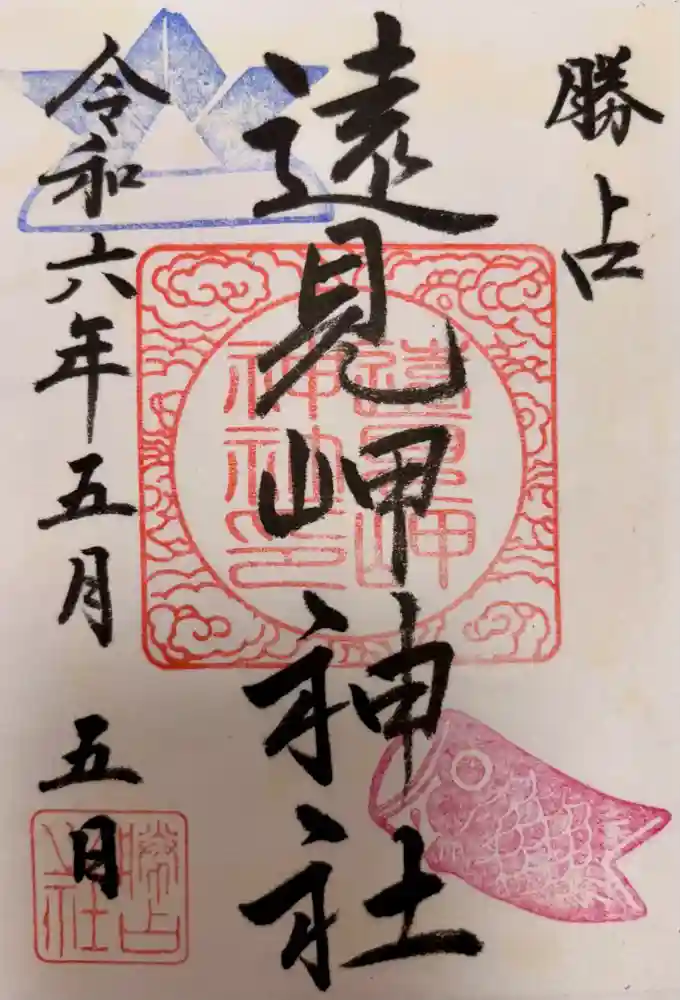 勝占
遠見岬神社
遠見岬
神社印
令和六年五月五日
勝占